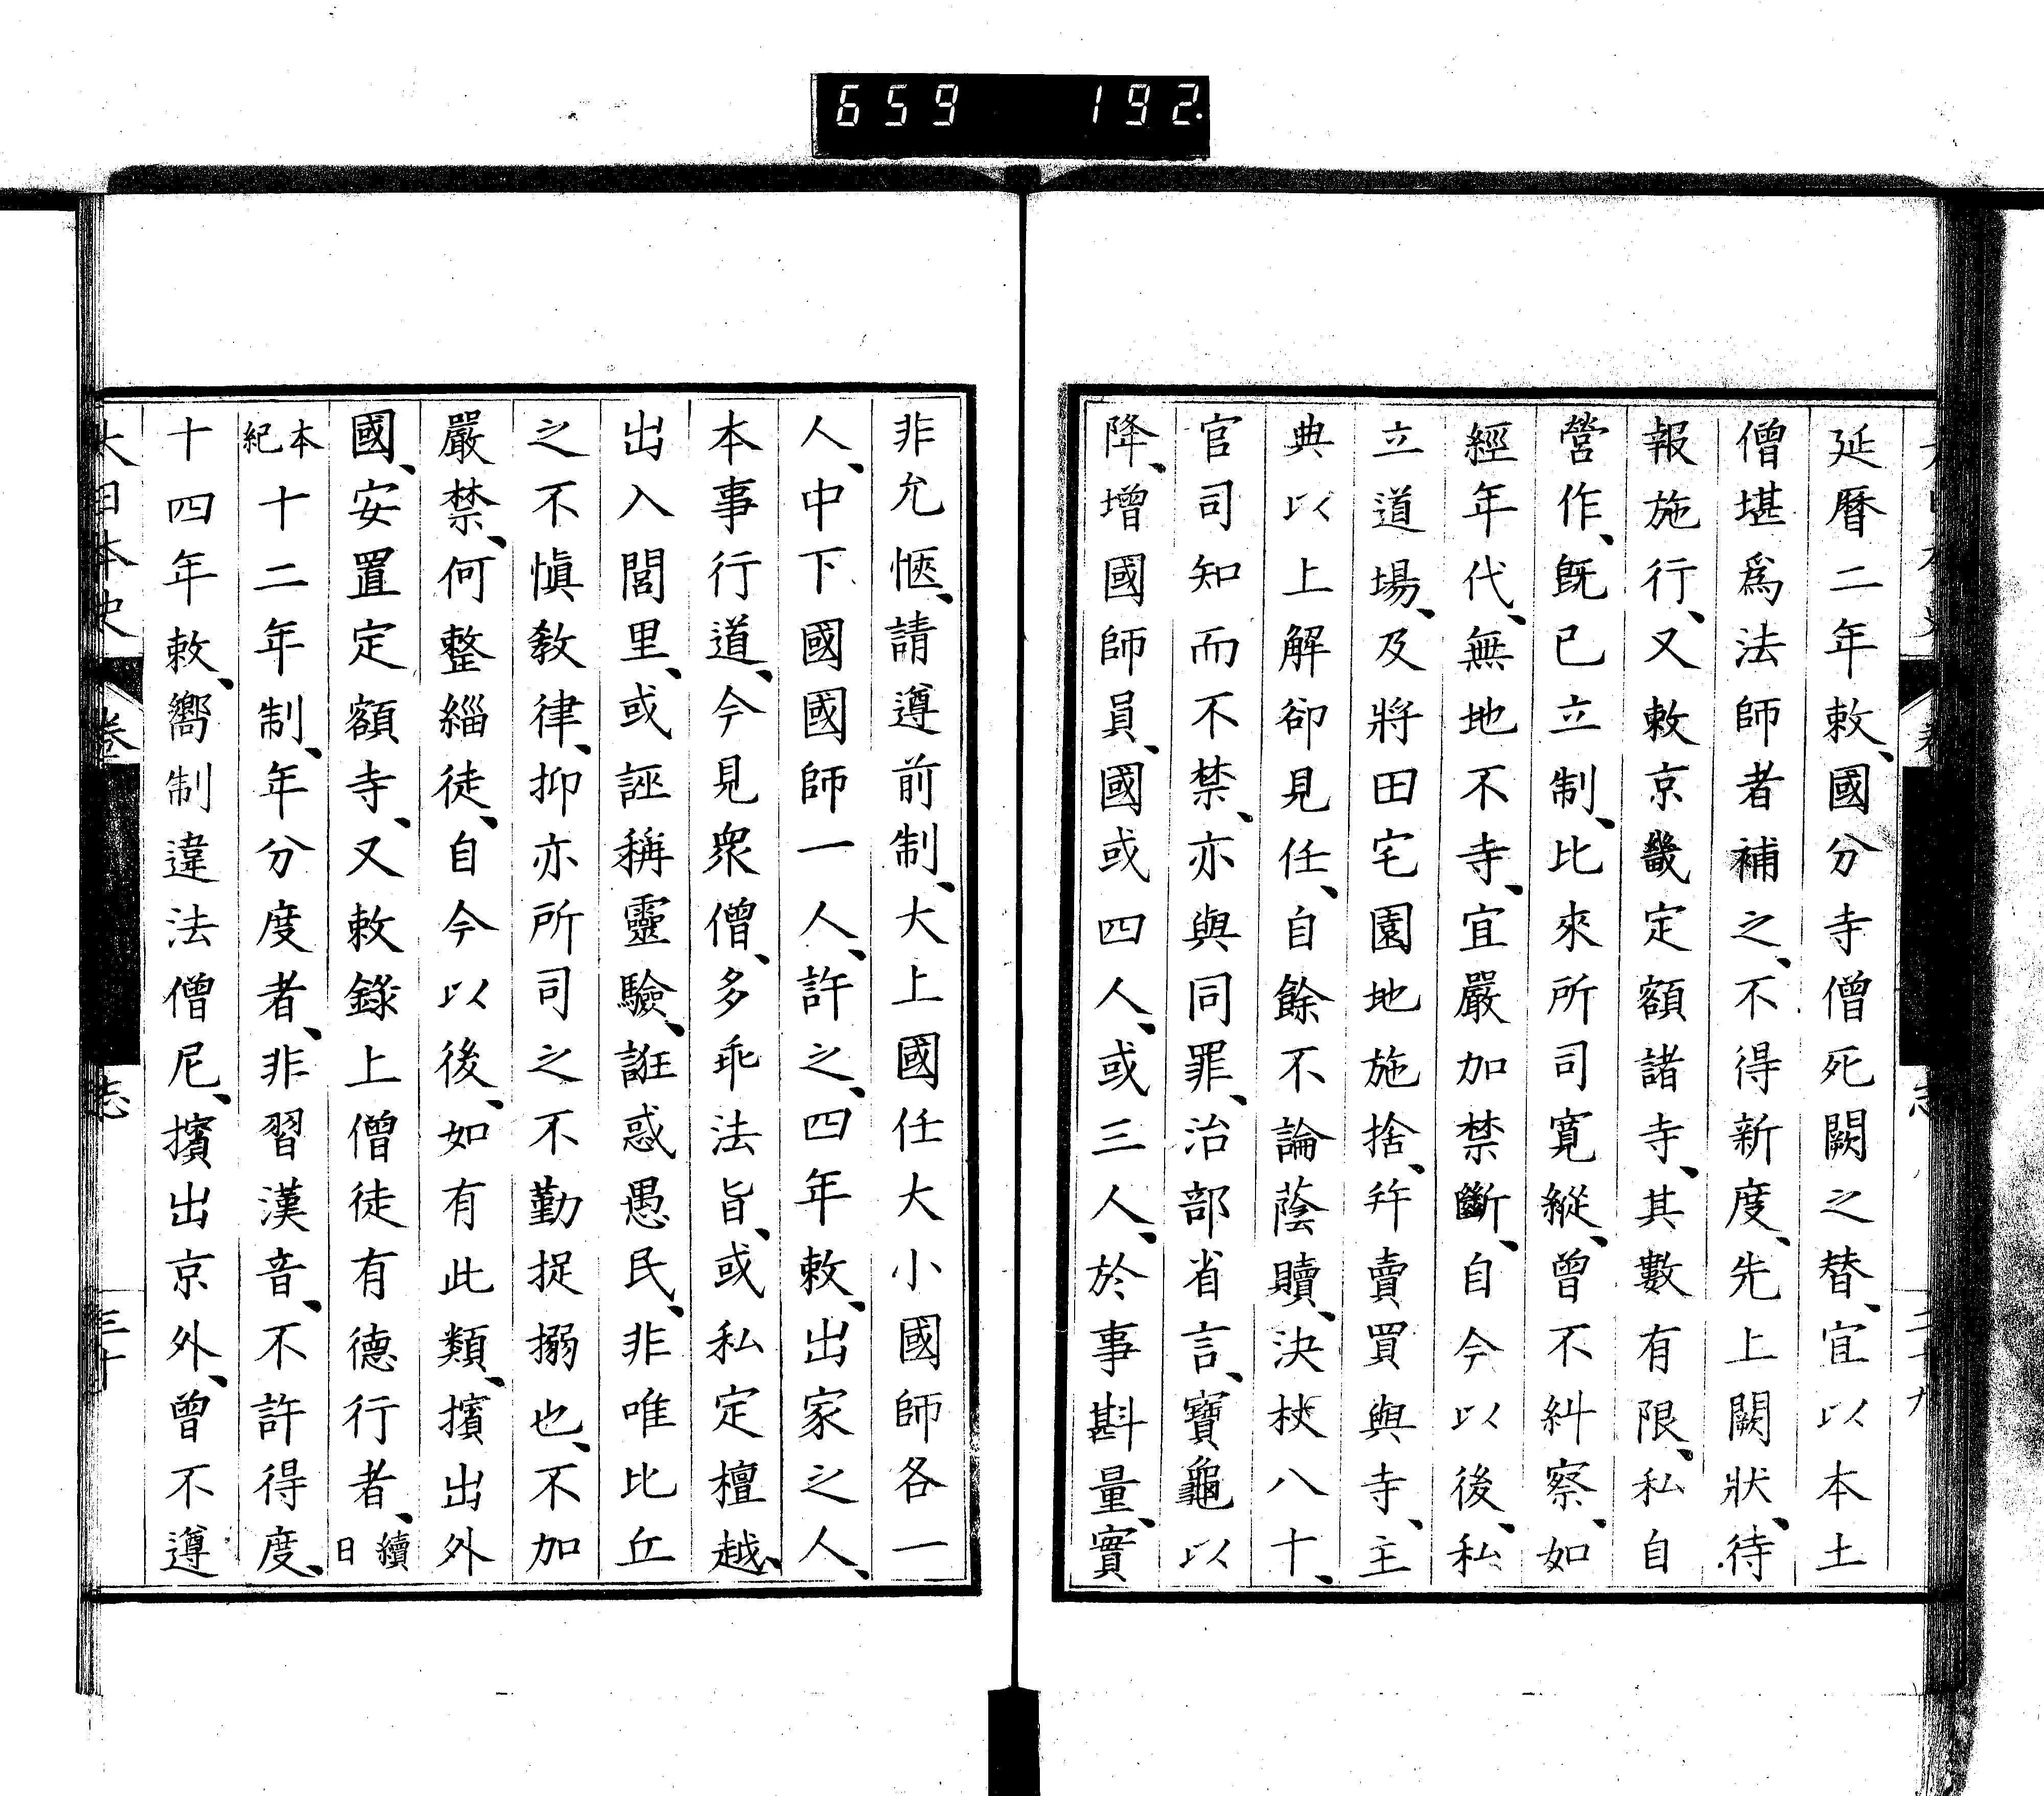 659 192.
延曆二年敕、國分寺僧死闕之替、宜以本土
僧堪爲法師者補之、不得新度、先上闕狀、待
報施行、又敕京畿定額諸寺、其數有限、私自
營作、旣已立制、比來所司寬縱、曾不糾察、如
經年代、無地不寺、宜嚴加禁斷、自今以後、私
立道場、及將田宅園地施捨、幷賣買與寺、主
典以上解卻見任、自餘不論蔭贖、決杖八十、
官司知而不禁、亦與同罪、治部省言、寶龜以
降、增國師員、國或四人、或三人、於事斟量、實
非允愜、請遵前制、大上國任大小國師各一
人、中下國國師一人、許之、四年敕、出家之人、
本事行道、今見衆僧、多乖法旨、或私定檀越、
出入閭里、或誣稱靈驗、詿惑愚民、非唯比丘
之不愼敎律、抑亦所司之不勤捉搦也、不加
嚴禁、何整緇徒、自今以後、如有此類、擯出外
國、安置定額寺、又敕錄上僧徒有德行者、續日
本紀十二年制、年分度者、非習漢音、不許得度、
十四年敕、嚮制違法僧尼、擯出京外、曾不遵
大日本史 卷 志 三十